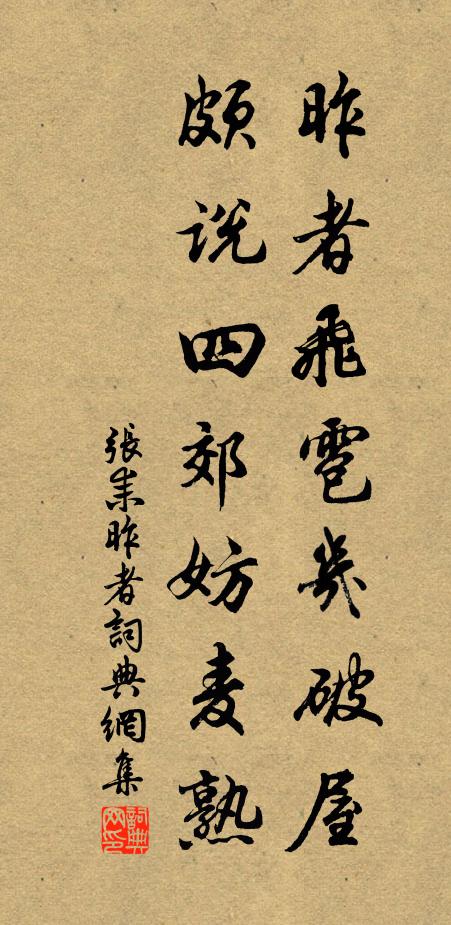 昨者飛雹幾破屋
頗說四郊妨麦熟
張耒昨者詞典網集
詞典网印